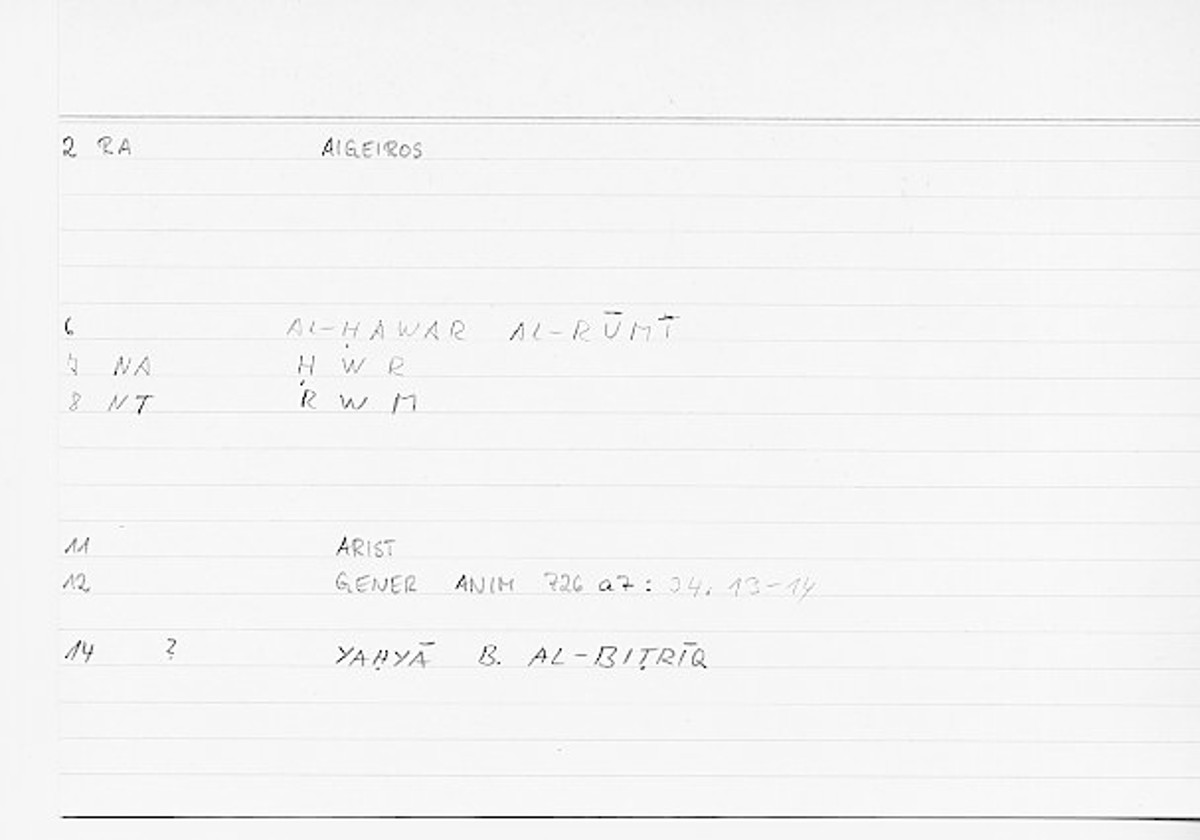 2 RA AIGEIROS
6 AL-ḤAWAR AL-RŪMĪ
7 NA Ḥ W R
8 NT R W M
11 ARIST
12 GENER ANIM 726 a7: 34. 13-14
14 ? YAḤYĀ B. AL-BIṬRĪQ